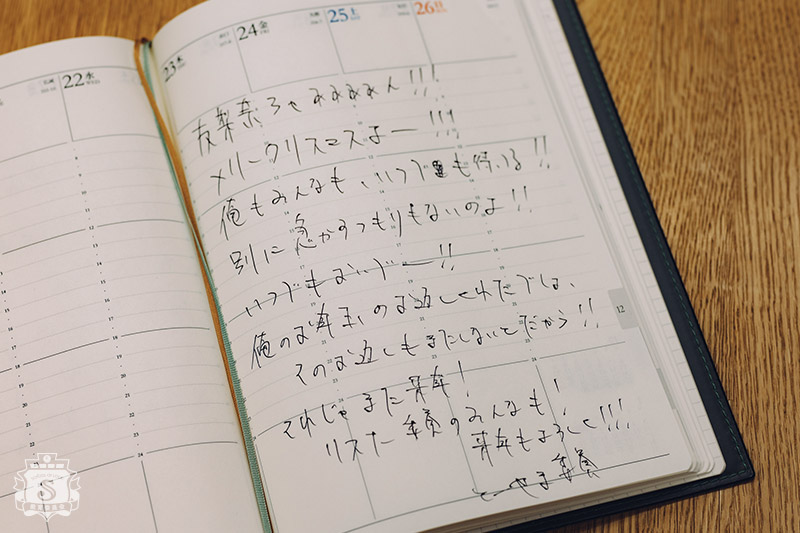 22 水
23 木
24 金
25 土
26 日
友梨奈ちゃみみみみん!!!
メリークリスマスよー!!!
俺もみんなも、いつでも待ってる!!
別に急かすつもりもないのよ!!
いつでもおいでー!!
俺のお年玉のお返しくれたでしょ、
そのお返しもまだしないとだから!!
それじゃまた来年!
リスナー生徒のみんなも!
来年もよろしく!!!
とーやま
12
S